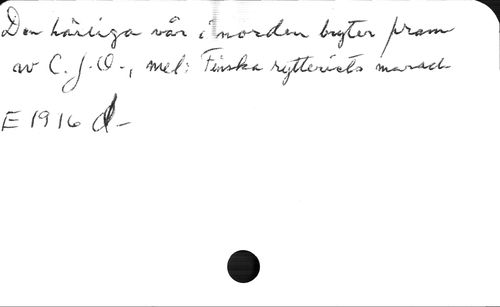 Den härliga vår i norden bryter fram
av C. J. O., mel: Finska rytteriets marsch
E 1916 d-